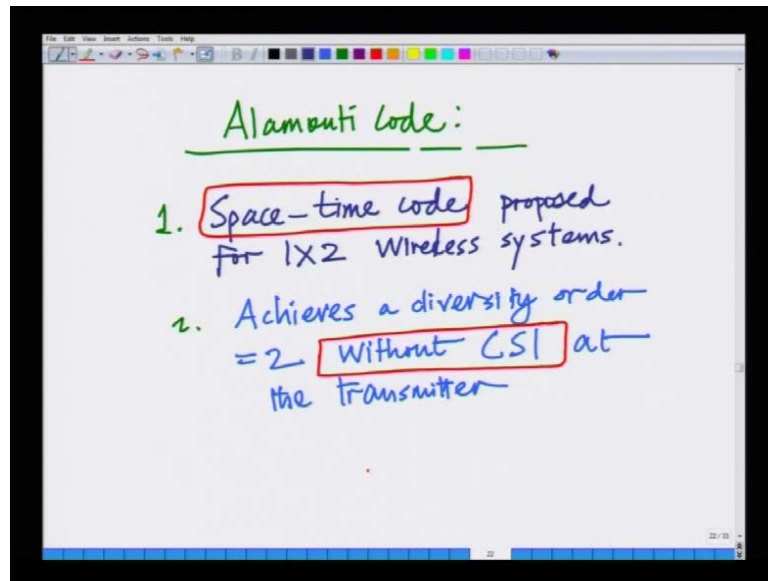 File Edit View Insert Actions Tools Help
B I
Alamouti Code:
1. Space-time code proposed
for 1X2 Wireless systems.
2. Achieves a diversity order
= 2 Without CSI at
the transmitter
22/33
22